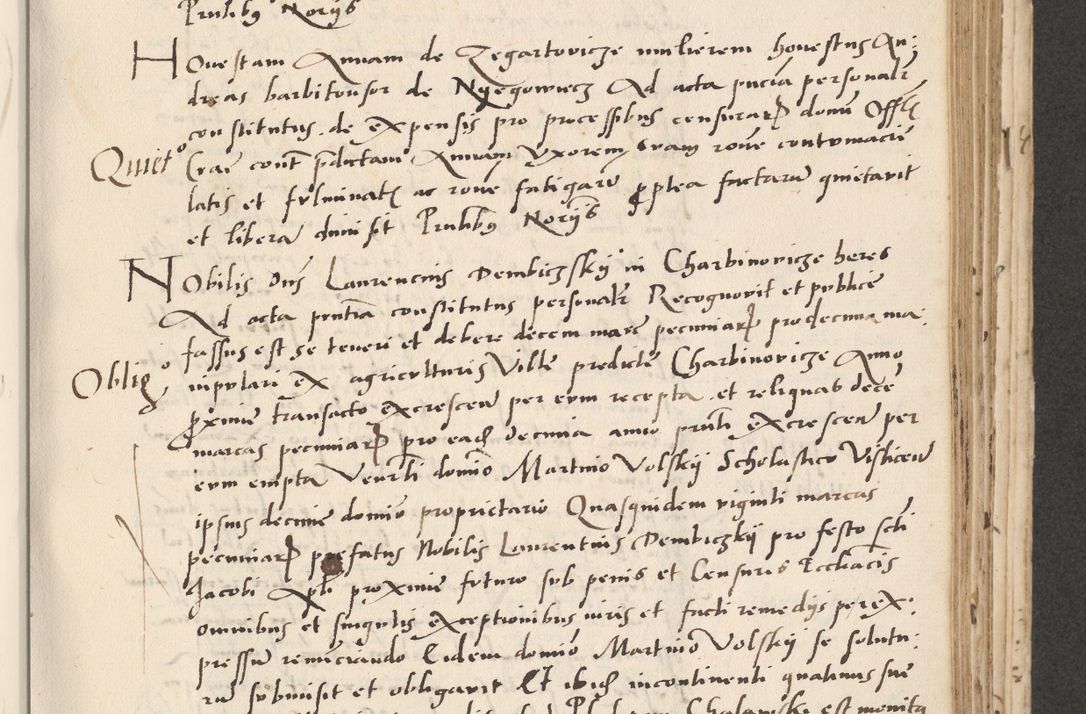 Pntibus Noriis
Honestam Annam de Zegartovicze mulierem honestus An:
dreas barbitonsor de Nyegowiecz Ad acta pncia personalr
constitutus de expensis pro processibus censurar domi Offlis
Quieto
Crac cont pdictam Annam Vxorem suam rone contumacie
latis et fulminatis ac rone fatigarum pptea factarum quietavit
et liberam dimisit Pntibus Noriis
Nobilis Dns Laurencius Dembiczsky in Charbinovicze heres
Ad acta pntia constitutus personalr Recognovit et publice
fassus est se teneri et debere decem marc pecuniar pro decima ma:
Oblig
nipulari ex agriculturis Ville predicte Charbinovicze Anno
proxime transacto excrescen per eum recepta et reliquas dece
marcas pecuniar pro eade Decima anno pnti excrescen per
eum empta Venrli domino Martino Volskij Scholastico Vislicen
ipsius decime domino proprietario Quasquidem viginti marcas
pecuniar prefatus Nobilis Laurentius Dembiczkij pro festo scti
Jacobi Apli proxime futuro sub penis et Censuris Eccliacis
omnibus et singulis exceptionibus iuris et facti remedijs per ex:
pressum renunciando Eidem domino Martino Volskij se solutu:
rum submisit et obligavit Et ibide incontinenti quatinus sue
est monita